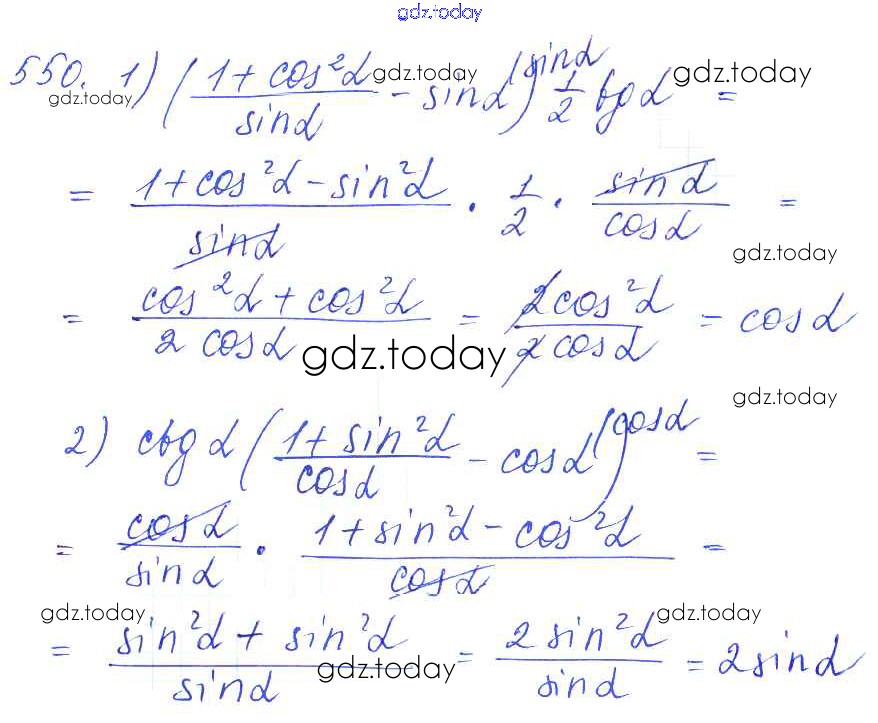 gdz.today
550. 1) ((1 + cos²α)/sinα − sinα^(sinα) ) 1/2 tgα =
gdz.today gdz.today gdz.today
= (1 + cos²α − sin²α)/sinα · 1/2 · sinα/cosα =
gdz.today
= (cos²α + cos²α)/(2 cosα) = (2cos²α)/(2cosα) = cosα
gdz.today
gdz.today
2) ctgα ((1 + sin²α)/cosα − cosα^(cosα) ) =
= cosα/sinα · (1 + sin²α − cos²α)/cosα =
gdz.today gdz.today
= (sin²α + sin²α)/sinα = (2 sin²α)/sinα = 2sinα
gdz.today